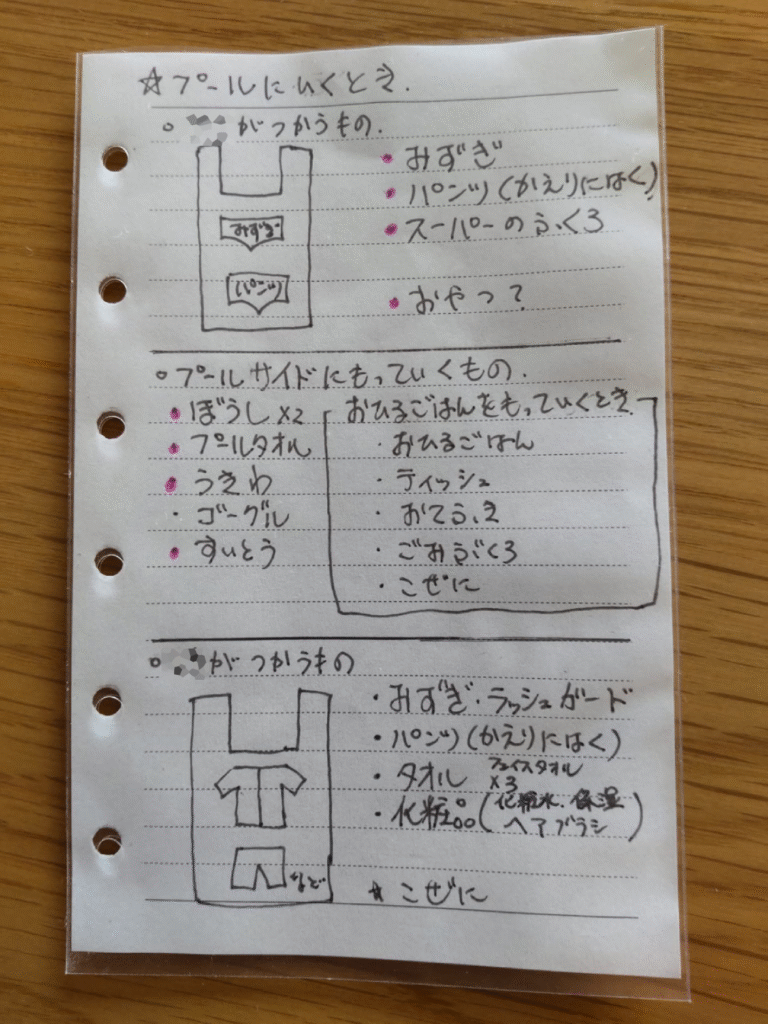 ☆プールにいくとき.
○ がつかうもの.
みずぎ
パンツ
・みずぎ
・パンツ(かえりにはく)
・スーパーのふくろ
・おやつ?
○プールサイドにもっていくもの.
・ぼうし×2
・プールタオル
・うきわ
・ゴーグル
・すいとう
おひるごはんをもっていくとき.
・おひるごはん
・ティッシュ
・おてふき
・ごみぶくろ
・こぜに
○ がつかうもの
など
・みずぎ・ラッシュガード
・パンツ(かえりにはく)
・タオル フェイスタオル×3
・化粧品(化粧水.保湿 ヘアブラシ)
★こぜに